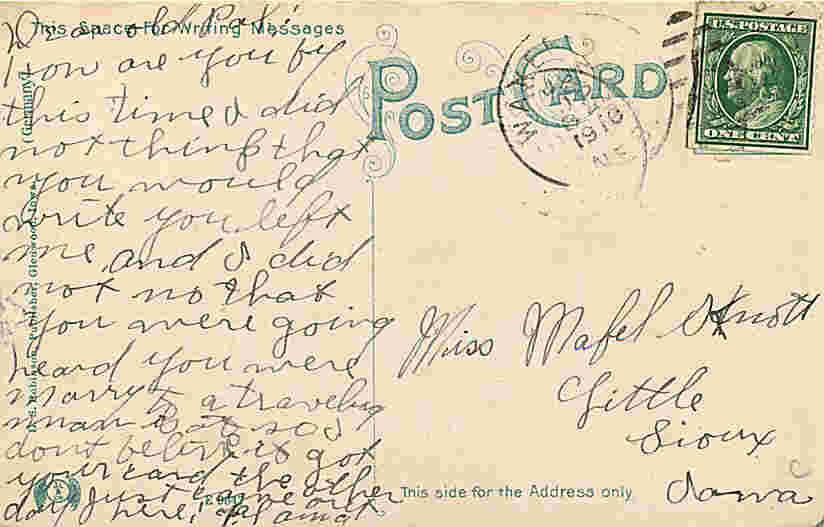 This Space For Writing Messages
Dear old Pal:
How are you by
this time I did
not think that
you would
write you left
me and I did
not no that
you were going
heard you were
marry to a traveling
man is it so I
dont believe it got
your card the other
day Just came out
here,
(Germany)
Publisher, Glenwood, Iowa.
POST CARD
1910
U.S. POSTAGE
ONE CENT
Miss Mabel Knott
Little
Sioux
Iowa
This side for the Address only